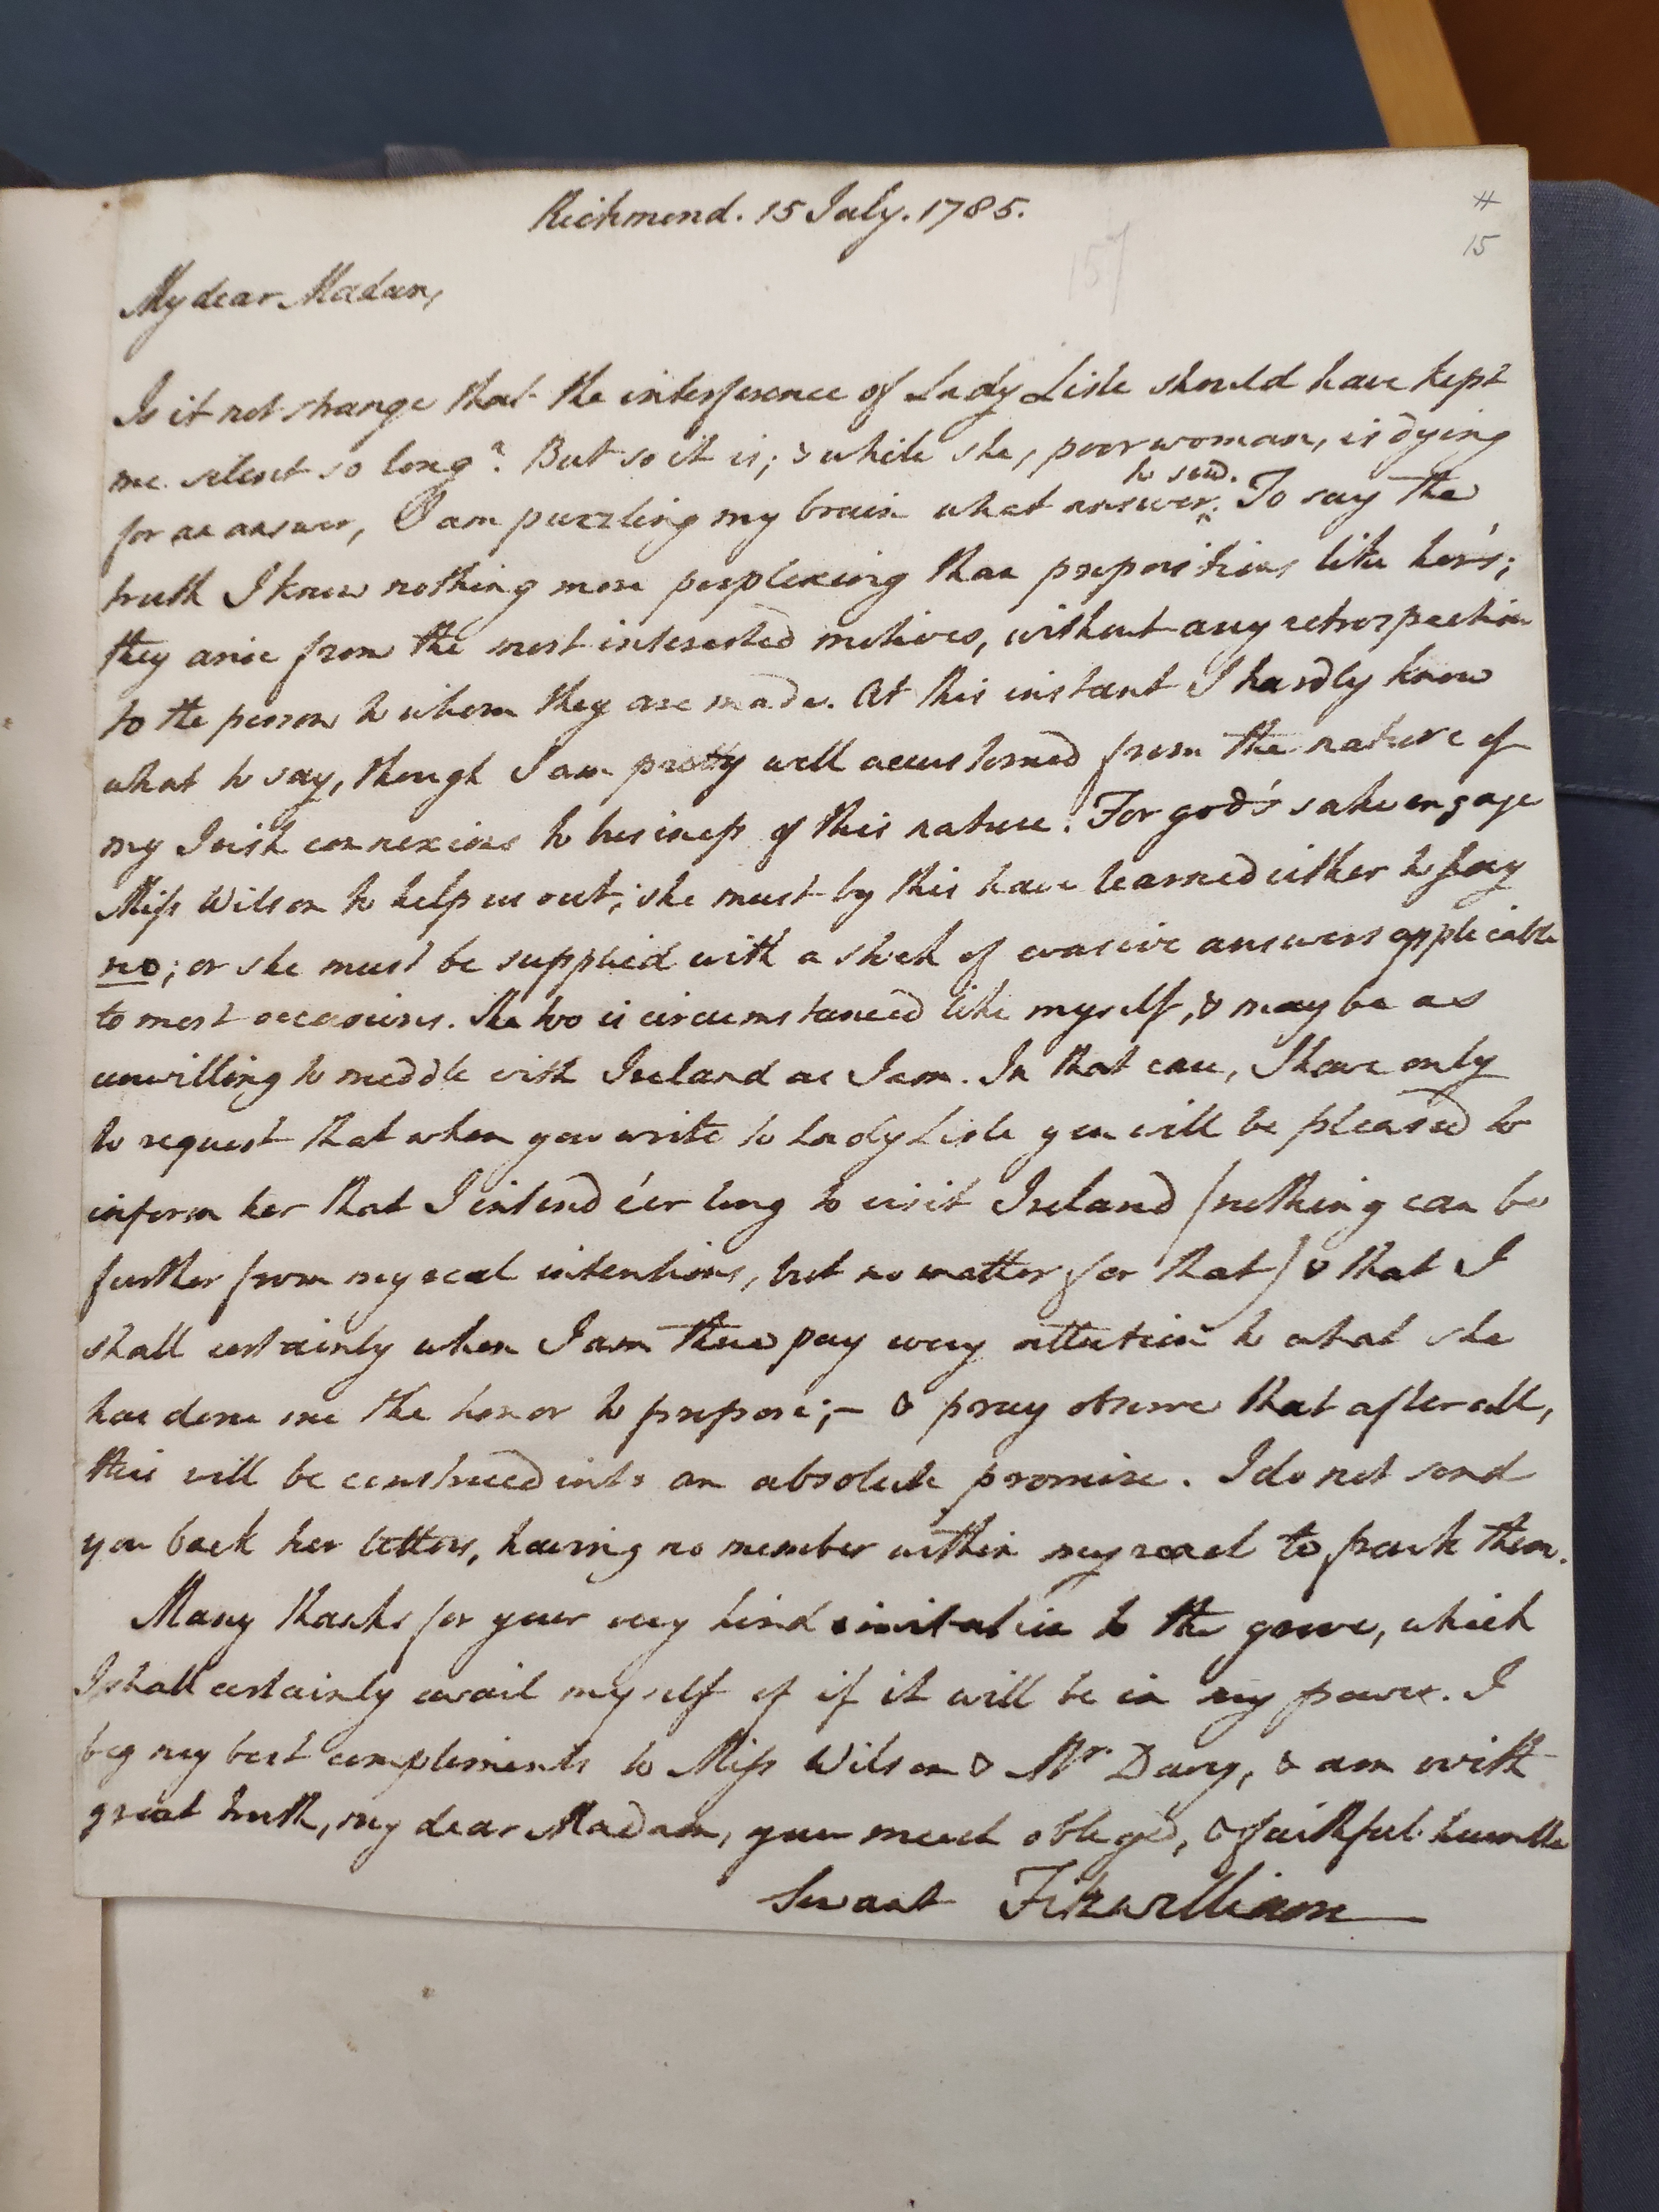 Richmond. 15 July. 1785.
#
15
157
My dear Madam,
Is it not strange that the interference of Lady Lisle should have kept
me silent so long? But so it is; & while she, poor woman, is dying
to send.
for an answer, I am puzzling my brain what answer^. To say the
truth I know nothing more perplexing than propositions like her's;
they arise from the most interested motives, without any retrospection
to the person to whom they are made. At this instant I hardly know
what to say, though I am pretty well accustomed from the nature of
my Irish connexions to business of this nature. For god's sake engage
Miss Wilson to help us out; she must by this have learned either to say
no; or she must be supplied with a stock of evasive answers applicable
to most occasions. She too is circumstanced like myself, & may be as
unwilling to meddle with Ireland as I am. In that case, I have only
to request that when you write to Lady Lisle you will be pleased to
inform her that I intend e'er long to visit Ireland (nothing can be
further from my real intentions, but no matter for that) & that I
shall certainly when I am there pay every attention to what she
has done me the honor to propose; – & pray observe that after all,
this will be construed into an absolute promise. I do not send
you back her letters, having no member within my reach to frank them.
Many thanks for your very kind invitation to the grove, which
I shall certainly avail myself of if it will be in my power. I
beg my best compliments to Miss Wilson & Mr. Davy, & am with
great truth, my dear Madam, your much obliged, & faithful humble
Servant Fitzwilliam